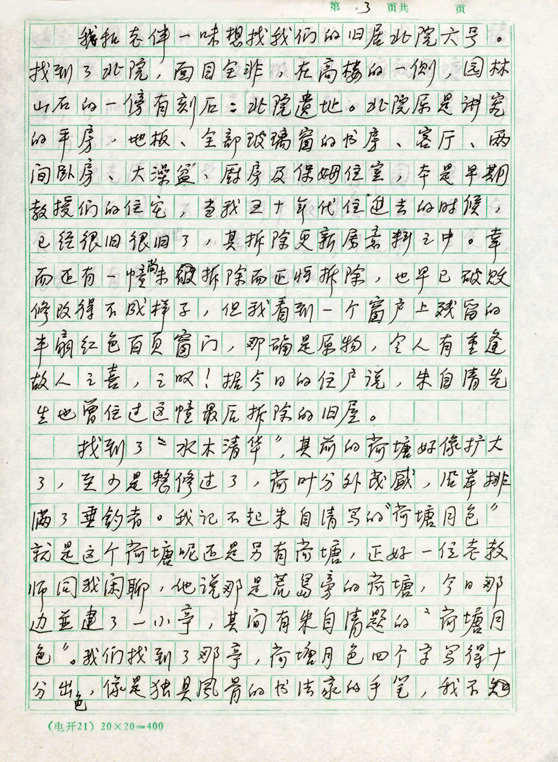 第 3 页共 页
我和老伴一味想找我们的旧居北院六号。
找到了北院,面目全非,在高楼的一侧,园林
山石的一傍有刻石:北院遗址。北院原是讲究
的平房,地板、全部玻璃窗的书房、客厅、两
间卧房、大澡盆、厨房及保姆住室,本是早期
教授们的住宅,当我五十年代住进去的时候,
已经很旧很旧了,其拆除更新属意料之中。幸
而还有一幢尚未拆除而正将拆除,也早已破败
修改得不成样子,但我看到一个窗户上残留的
半扇红色百页窗门,那确是原物,令人有重逢
故人之喜,之叹!据今日的住户说,朱自清先
生也曾住过这幢最后拆除的旧屋。
找到了“水木清华”,其前的荷塘好像扩大
了,至少是整修过了,荷叶分外茂盛,沿岸排
满了垂钓者。我记不起朱自清写的“荷塘月色”
就是这个荷塘呢还是另有荷塘,正好一位老教
师同我闲聊,他说那是荒岛旁的荷塘,今日那
边并建了一小亭,其间有朱自清题的“荷塘月
色”。我们找到了那亭,荷塘月色四个字写得十
分出色,像是独具风骨的书法家的手笔,我不知
(电开21) 20×20=400